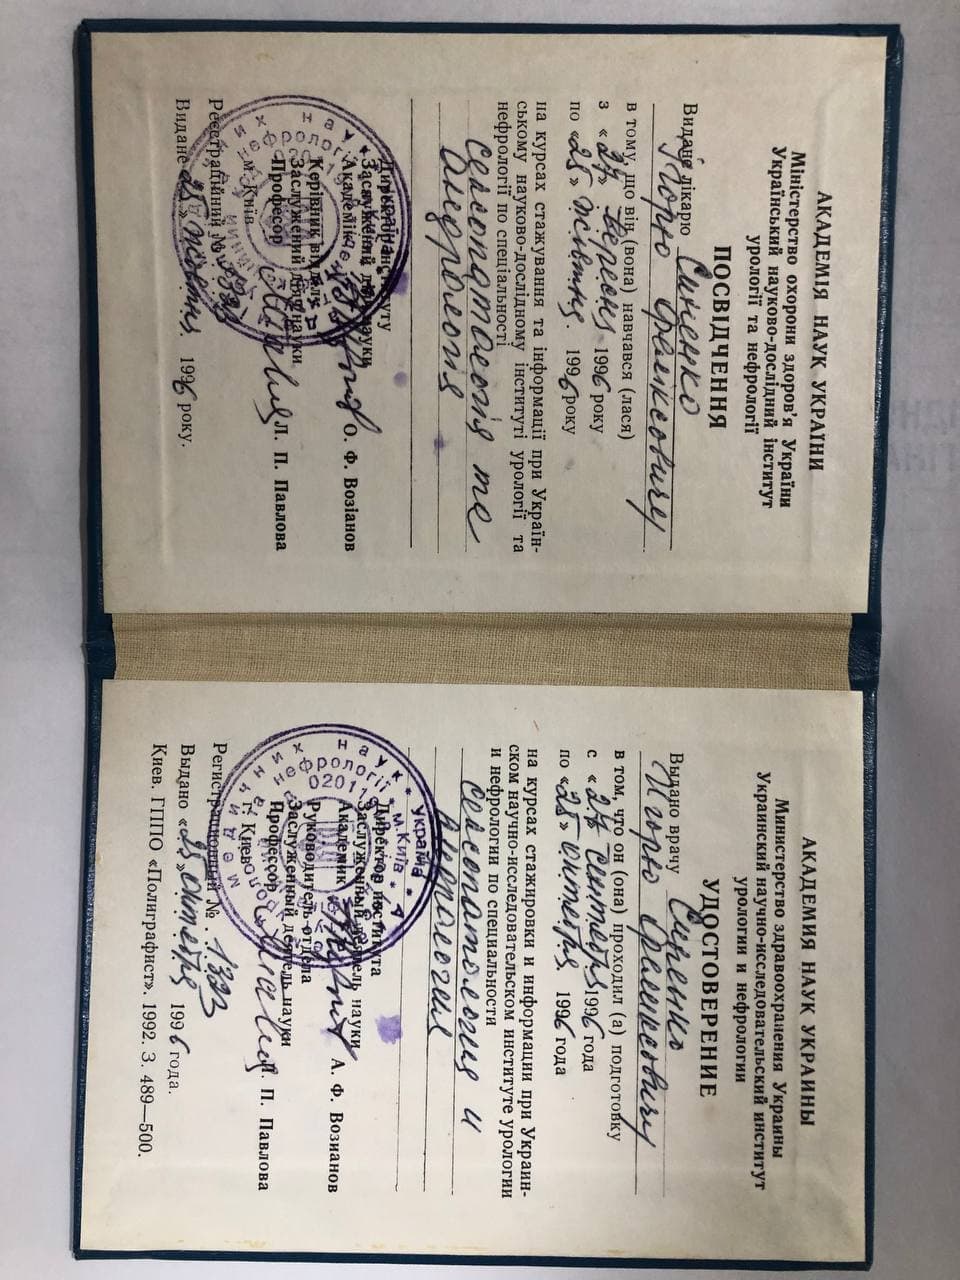 АКАДЕМІЯ НАУК УКРАЇНИ
Міністерство охорони здоров'я України
Український науково-дослідний інститут
урології та нефрології
ПОСВІДЧЕННЯ
Видане лікарю Синенко
Ігорю Феліксовичу
в тому, що він (вона) навчався (лася)
з «27» вересня 1996 року
по «25» жовтня. 1996 року
на курсах стажування та інформації при Україн-
ському науково-дослідному інституті урології та
нефрології по спеціальності
сексопатологія та
андрологія
Директор інституту
Заслужений діяч науки
Академік О. Ф. Возіанов
Керівник відділу
Заслужений діяч науки
Професор Л. П. Павлова
м. Київ
Реєстраційний № 1323
Видане «25» жовтня. 1996 року.
АКАДЕМИЯ НАУК УКРАИНЫ
Министерство здравоохранения Украины
Украинский научно-исследовательский институт
урологии и нефрологии
УДОСТОВЕРЕНИЕ
Выдано врачу Синенко
Игорю Феликсовичу
в том, что он (она) проходил (а) подготовку
с «27 сентября 1996 года
по «25» октября. 1996 года
на курсах стажировки и информации при Украин-
ском научно-исследовательском институте урологии
и нефрологии по специальности
сексопатология и
андрология
Директор института
Заслуженный деятель науки
Академик А. Ф. Возианов
Руководитель отдела
Заслуженный деятель науки
Профессор Л. П. Павлова
г. Киев
Регистрационный № . 1323
Выдано «25» октября 1996 года.
Киев. ГППО «Полиграфист». 1992. З. 489—500.